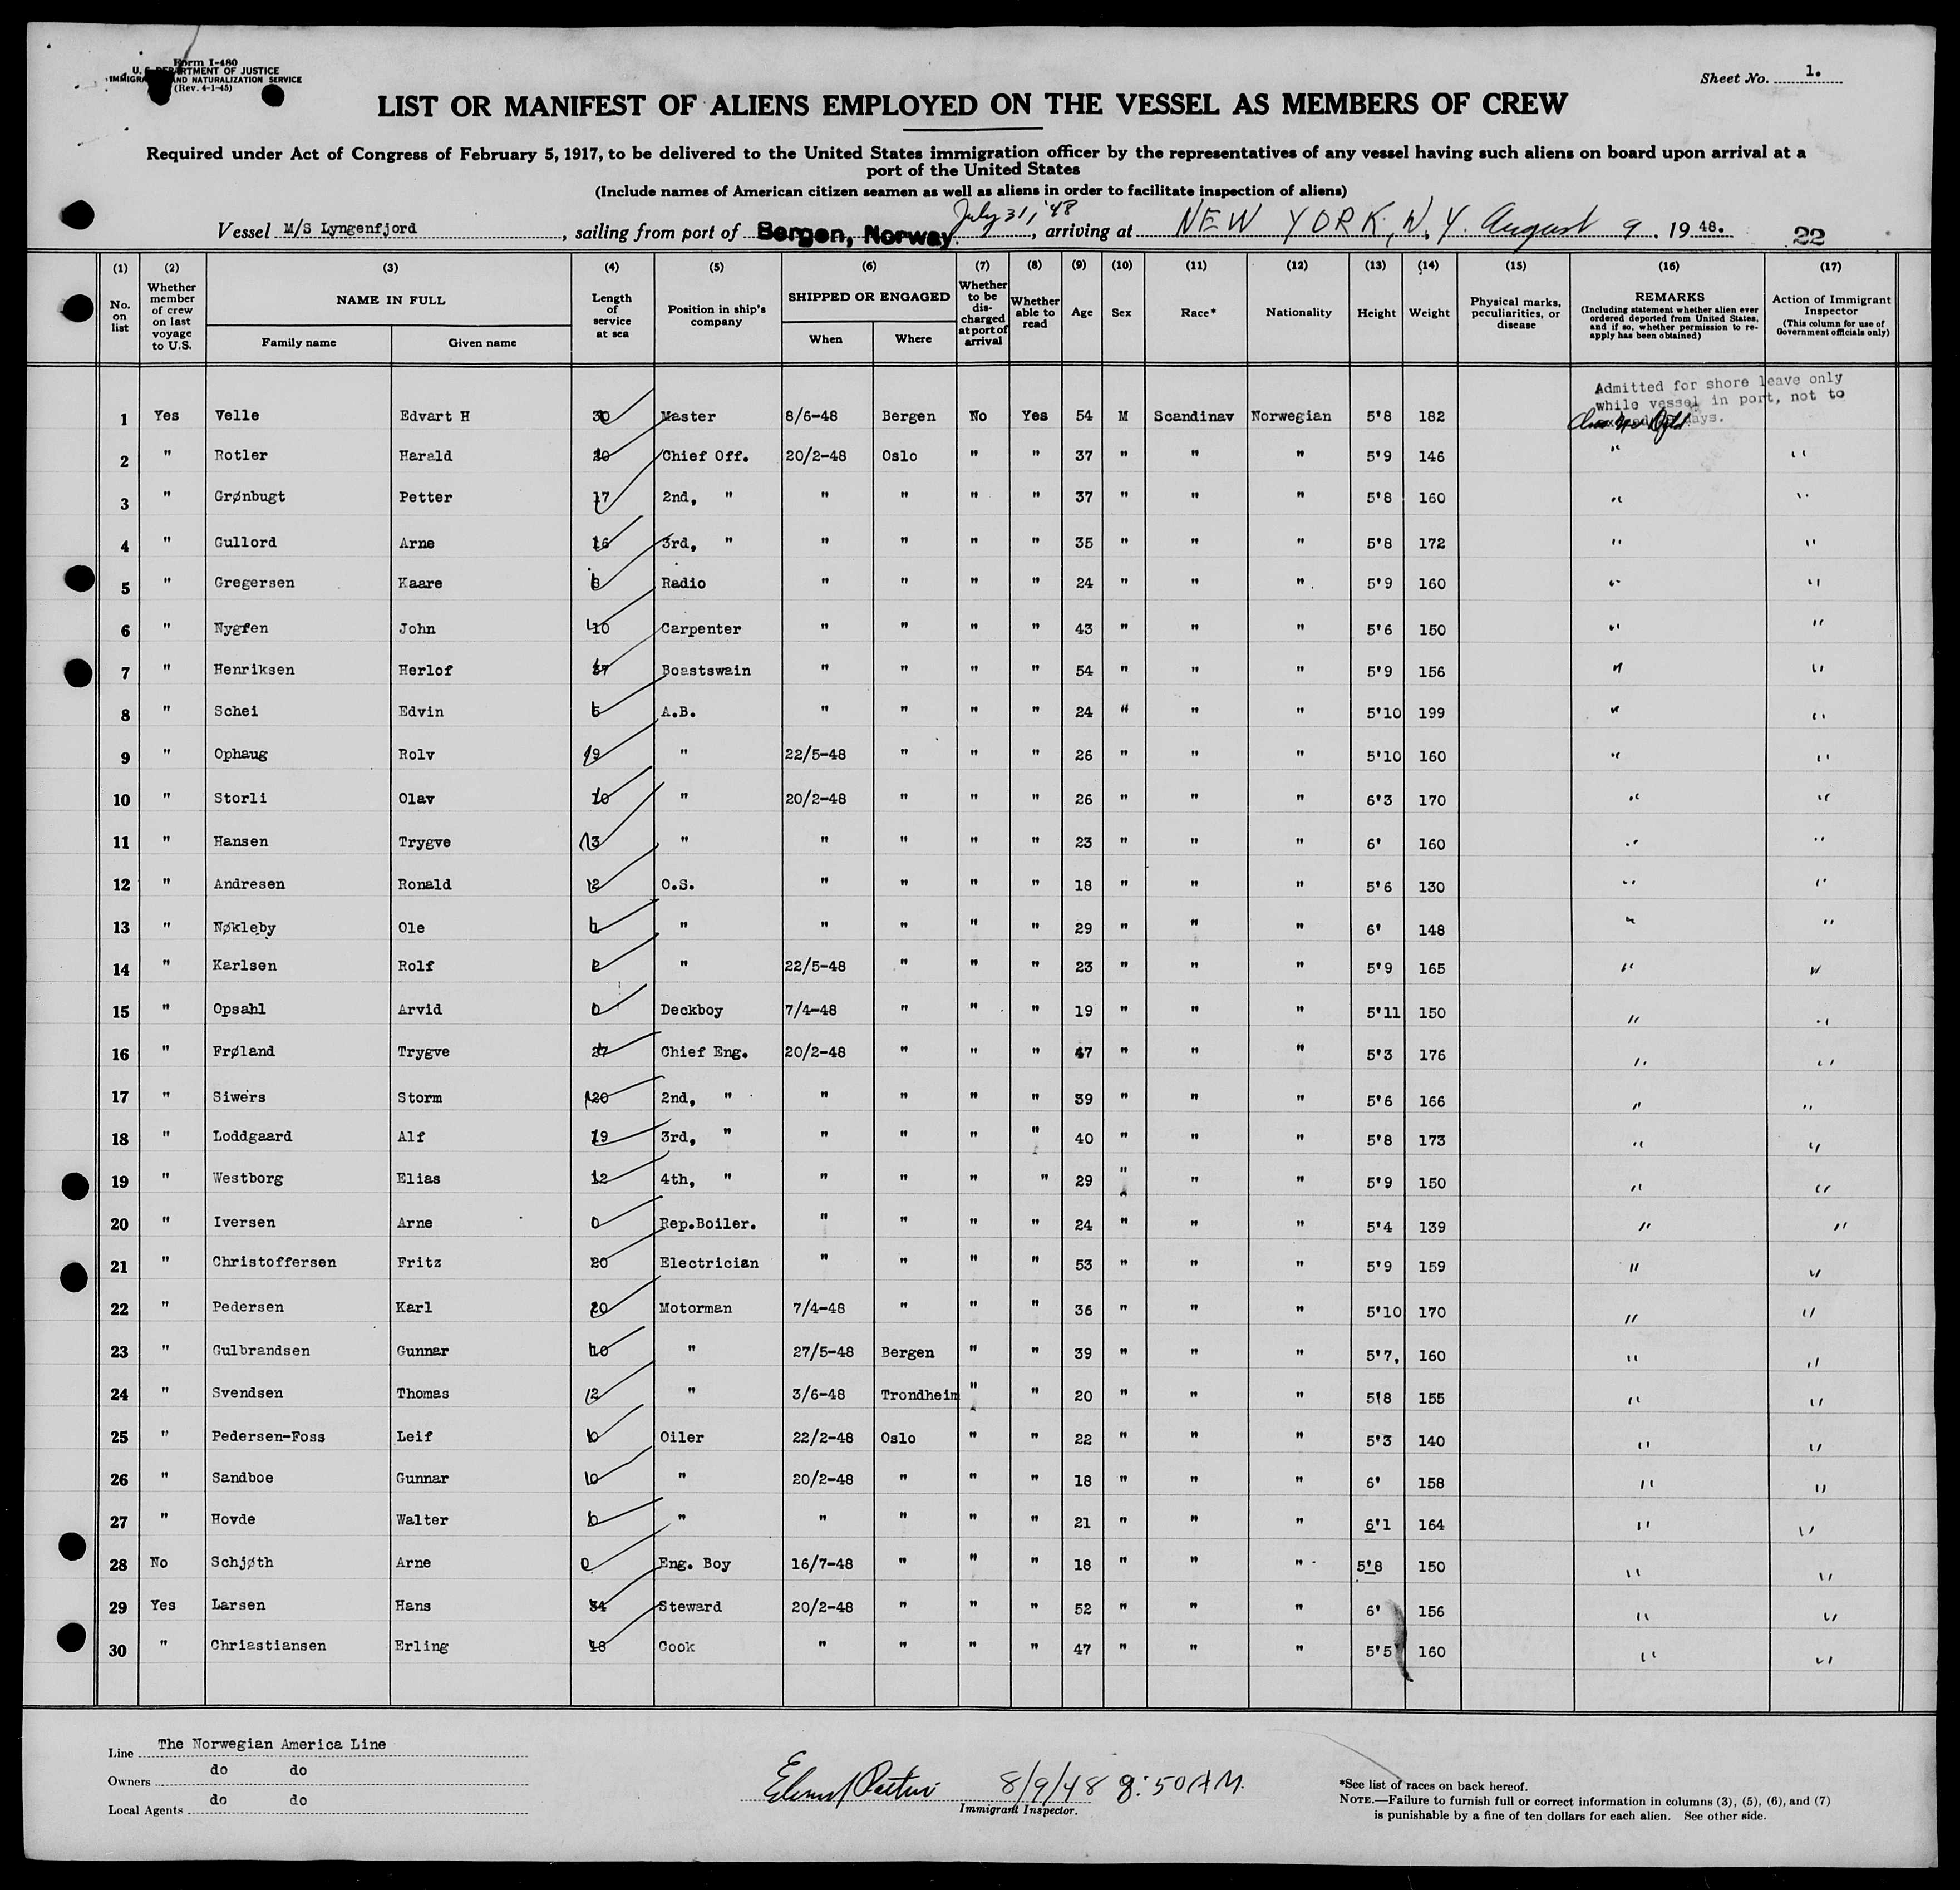 Form I-480
U. S. DEPARTMENT OF JUSTICE
IMMIGRATION AND NATURALIZATION SERVICE
(Rev. 4-1-45)
Sheet No. 1.
LIST OR MANIFEST OF ALIENS EMPLOYED ON THE VESSEL AS MEMBERS OF CREW
Required under Act of Congress of February 5, 1917, to be delivered to the United States immigration officer by the representatives of any vessel having such aliens on board upon arrival at a
port of the United States
(Include names of American citizen seamen as well as aliens in order to facilitate inspection of aliens)
Vessel M/S Lyngenfjord, sailing from port of Bergen, Norway. July 31, '48, arriving at NEW YORK, N.Y. August 9. 1948. 22
(1) (2) (3) (4) (5) (6) (7) (8) (9) (10) (11) (12) (13) (14) (15) (16) (17)
No. on list
Whether member of crew on last voyage to U.S.
NAME IN FULL
Family name Given name
Length of service at sea
Position in ship's company
SHIPPED OR ENGAGED
When Where
Whether to be discharged at port of arrival
Whether able to read
Age
Sex
Race*
Nationality
Height
Weight
Physical marks, peculiarities, or disease
REMARKS
(Including statement whether alien ever ordered deported from United States, and if so, whether permission to reapply has been obtained)
Action of Immigrant Inspector
(This column for use of Government officials only)
Admitted for shore leave only
while vessel in port, not to
days.
1 Yes Velle Edvart H 30 Master 8/6-48 Bergen No Yes 54 M Scandinav Norwegian 5'8 182
2 " Rotler Harald 20 Chief Off. 20/2-48 Oslo " " 37 " " " 5'9 146 " "
3 " Grønbugt Petter 17 2nd, " " " " " 37 " " " 5'8 160 " "
4 " Gullord Arne 16 3rd, " " " " " 35 " " " 5'8 172 " "
5 " Gregersen Kaare 8 Radio " " " " 24 " " " 5'9 160 " "
6 " Nygren John 10 Carpenter " " " " 43 " " " 5'6 150 " "
7 " Henriksen Herlof 37 Boastswain " " " " 54 " " " 5'9 156 " "
8 " Schei Edvin 5 A.B. " " " " 24 " " " 5'10 199 " "
9 " Ophaug Rolv 9 " 22/5-48 " " " 26 " " " 5'10 160 " "
10 " Storli Olav 10 " 20/2-48 " " " 26 " " " 6'3 170 " "
11 " Hansen Trygve 3 " " " " " 23 " " " 6' 160 " "
12 " Andresen Ronald 2 O.S. " " " " 18 " " " 5'6 130 " "
13 " Nøkleby Ole 1 " " " " " 29 " " " 6' 148 " "
14 " Karlsen Rolf 2 " 22/5-48 " " " 23 " " " 5'9 165 " "
15 " Opsahl Arvid 0 Deckboy 7/4-48 " " " 19 " " " 5'11 150 " "
16 " Frøland Trygve 27 Chief Eng. 20/2-48 " " " 47 " " " 5'3 176 " "
17 " Siwers Storm 20 2nd, " " " " " 39 " " " 5'6 166 " "
18 " Loddgaard Alf 19 3rd, " " " " " 40 " " " 5'8 173 " "
19 " Westborg Elias 12 4th, " " " " " 29 " " " 5'9 150 " "
20 " Iversen Arne 0 Rep.Boiler. " " " " 24 " " " 5'4 139 " "
21 " Christoffersen Fritz 20 Electrician " " " " 53 " " " 5'9 159 " "
22 " Pedersen Karl 20 Motorman 7/4-48 " " " 36 " " " 5'10 170 " "
23 " Gulbrandsen Gunnar 10 " 27/5-48 Bergen " " 39 " " " 5'7, 160 " "
24 " Svendsen Thomas 2 " 3/6-48 Trondheim " " 20 " " " 5'8 155 " "
25 " Pedersen-Foss Leif 0 Oiler 22/2-48 Oslo " " 22 " " " 5'3 140 " "
26 " Sandboe Gunnar 0 " 20/2-48 " " " 18 " " " 6' 158 " "
27 " Hovde Walter 0 " " " " " 21 " " " 6'1 164 " "
28 No Schjøth Arne 0 Eng. Boy 16/7-48 " " " 18 " " " 5'8 150 " "
29 Yes Larsen Hans 34 Steward 20/2-48 " " " 52 " " " 6' 156 " "
30 " Chriastiansen Erling 18 Cook " " " " 47 " " " 5'5 160 " "
Line The Norwegian America Line
Owners do do
Local Agents do do
8/9/48 8:50 AM.
Immigrant Inspector.
*See list of races on back hereof.
NOTE.—Failure to furnish full or correct information in columns (3), (5), (6), and (7)
is punishable by a fine of ten dollars for each alien. See other side.